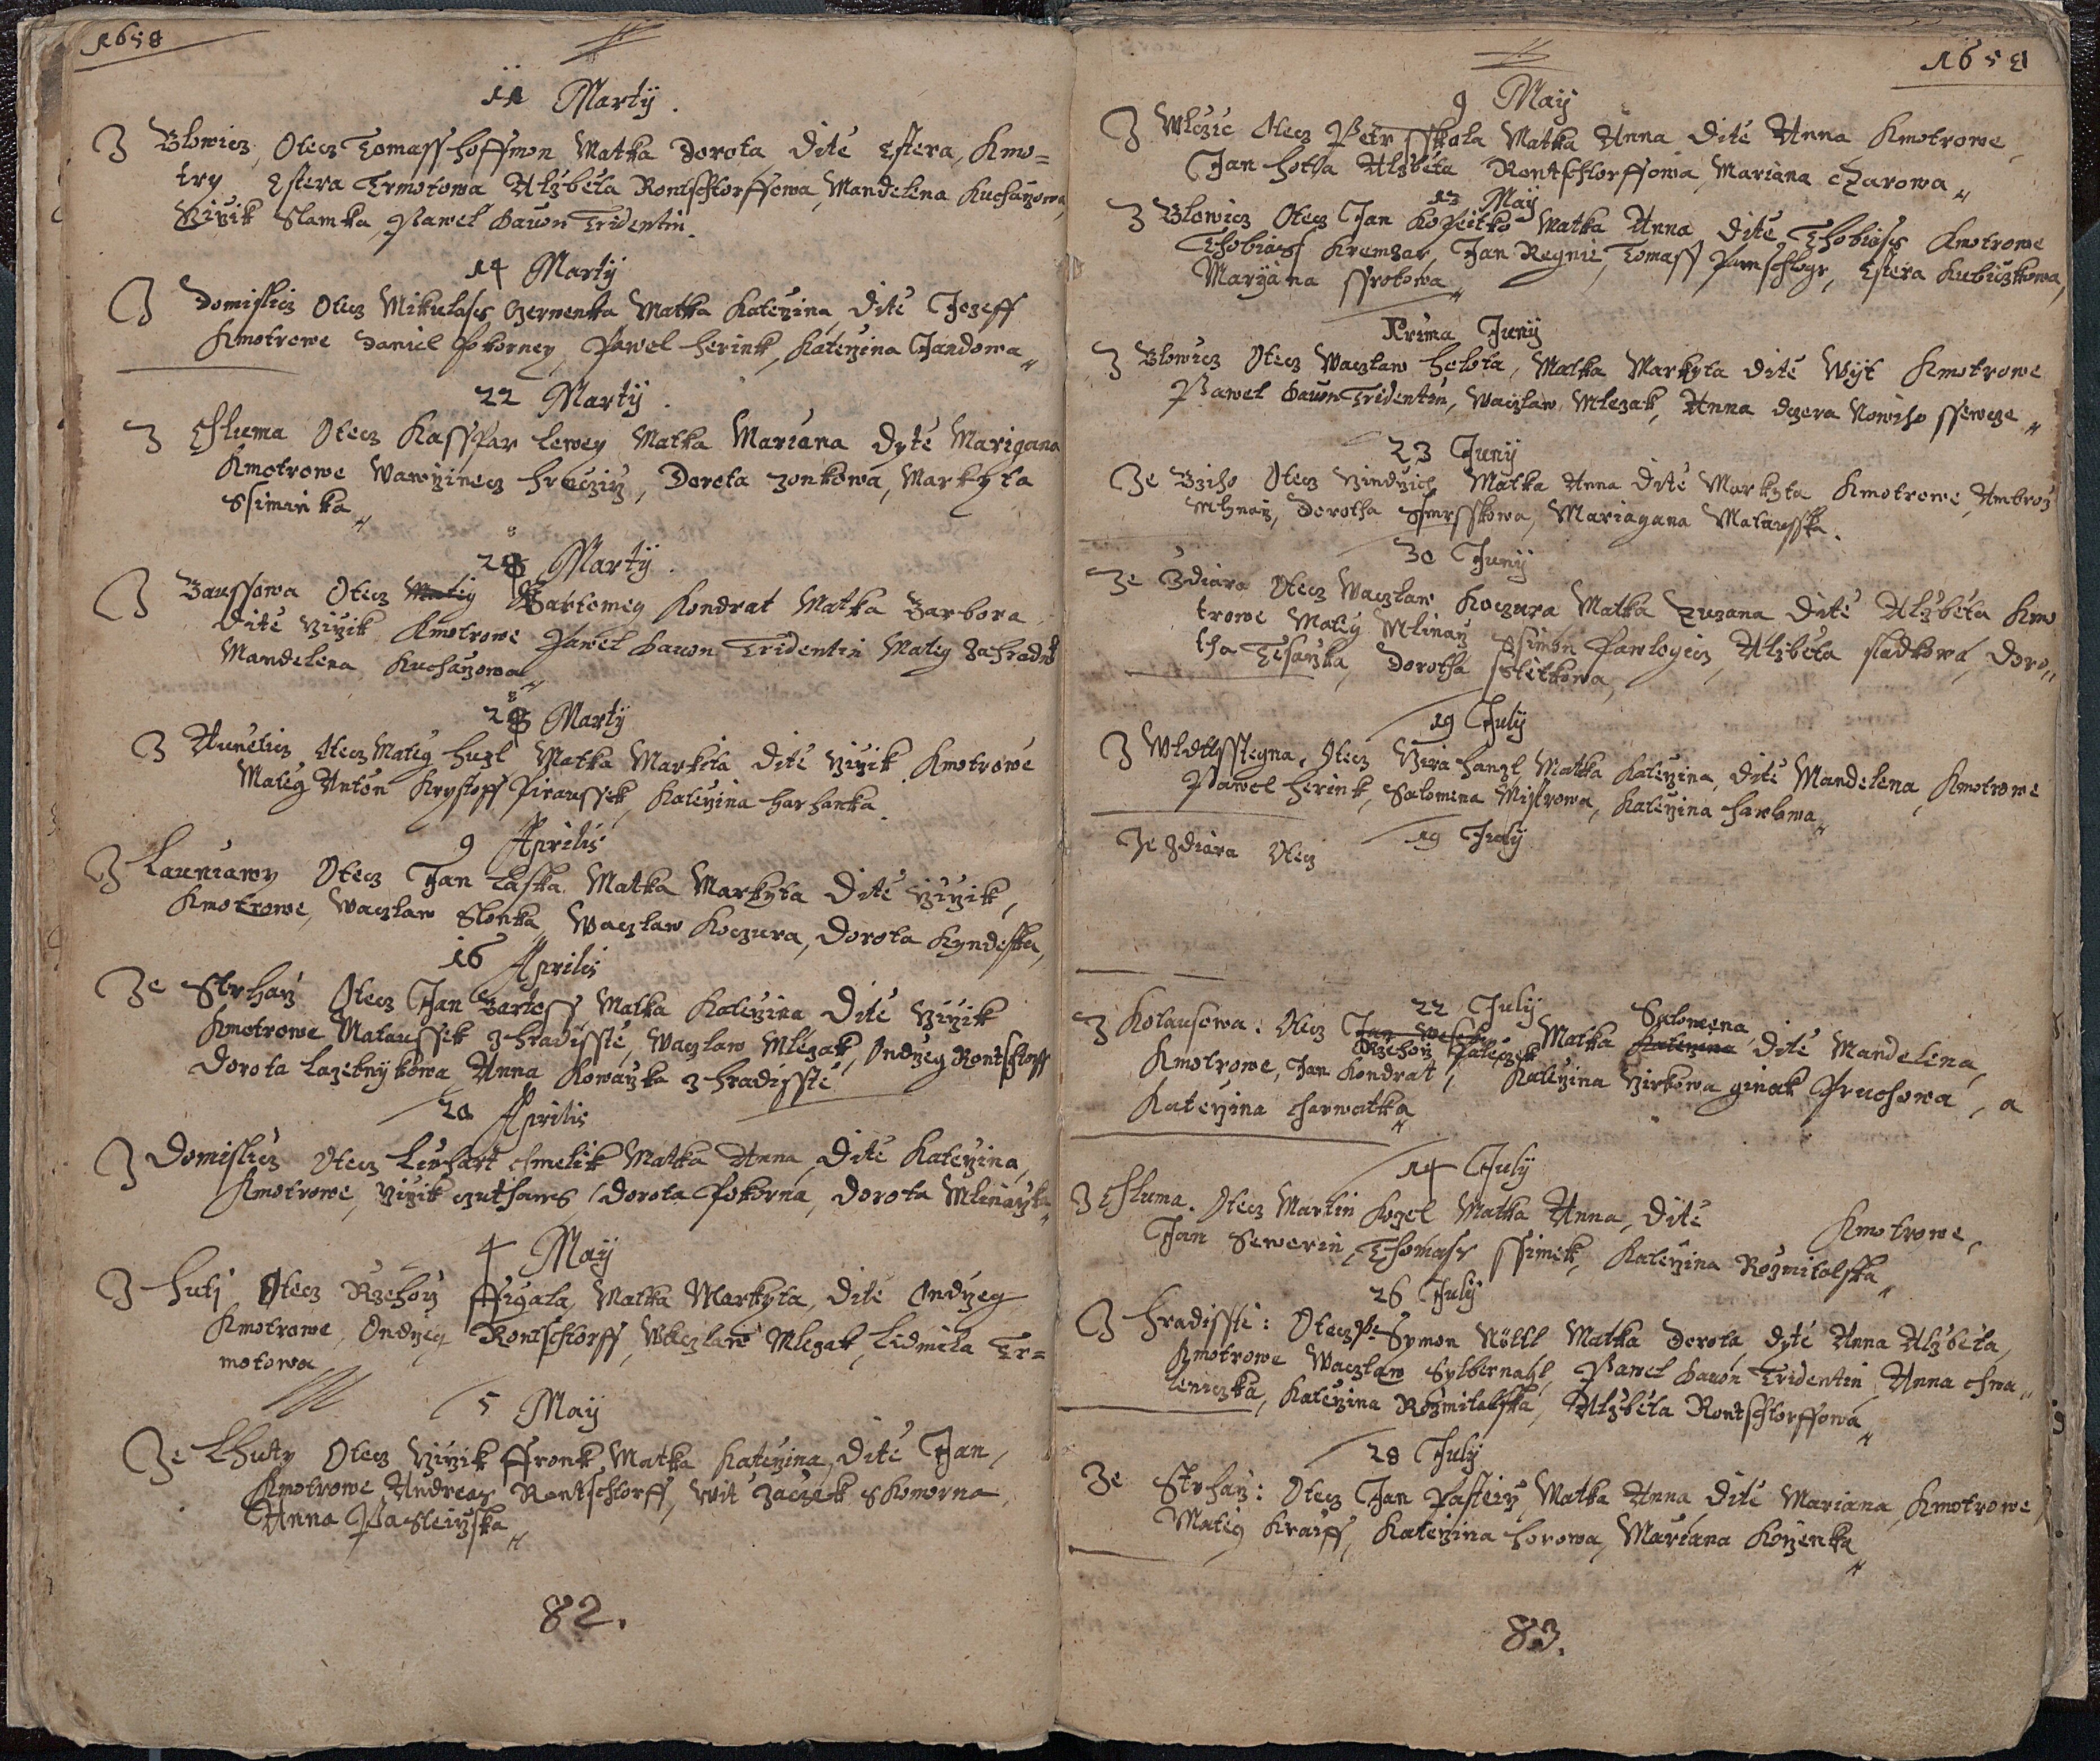 1658
11 Martÿ.
Z Blowicz, Otecz Tomass hoffmon Matka Dorota, Dite Estera, Kmo=
try Estera Trmotowa Alzběta Rontschtorffowa, Mandelena Kucharzowa,
Girzik Slamka, Pawel Bawon Tridentin.
14 Martÿ
Z Domislicz Otecz Mikulass Czerwenka Matka Katerzina, Dite Jozeff
Kmotrowe Daniel Pokorney, Pawel herink, Katerzina Jandowa
22 Martÿ.
Z Chluma Otecz Kassspar Lewey Matka Mariana Dyte Marigana
Kmotrowe Wawrzinecz hrnczirz, Dorota zonkowa, Markyta
Ssiminka
28 Martÿ.
Z Zaussowa Otecz Matig Bartomeg Kondrat Matka Barbora
Dite Girzik Kmotrowe Pawel Bawon Tridentin Matig Zahradnik
Mandelena Kucharzowa
28 Martÿ
Z Aunelicz Otecz Matig hugl Matka Markita Dite Girzik Kmotrowe
Matig Anton Krystoff Piraussek, Katerzina harhanka.
9 Aprilis
Z Launiowy Otecz Jan Laska Matka Markyta Dite Girzik,
Kmotrowe, Waczlaw Slonka, Waczlaw Koczura, Dorota Kyndsska,
16 Aprilis
Ze Strharz Otecz Jan Bartoss Matka Katerzina Dite Girzik
Kmotrowe Mataussek z hradisste, Waczlaw Mlezak, Ondrzeg Rontschtorff
Dorota Lazebnykowa Anna Kowarzka z hradisste
20 Aprilis
Z Domislicz Otecz Linhart Chmelik Matka Anna, Dite Katerzina,
Kmotrowe, Girzik guthans, Dorota Pokorna, Dorota Mlinarzka
4 May
Z huti Otecz Rzehorz ffigala, Matka Markyta, Dite Ondrzeg
Kmotrowe, Ondrzeg Rontschtorff, Waczlaw Mlezak, Lidmila Tr=
motowa
5 May
Ze Lhuty Otecz Girzik ffronk Matka Katerzina, Dite Jan,
Kmotrowe Andreas Rontschtorff, Wit Zaczek Skomorna
Anna Pasteirzska
82.
1658
9 Maÿ
Z Wlczic Otecz Petr Sskola Matka Anna Dite Anna Kmotrowe,
Jan hotha Alzběta Rontschtorffowa, Mariana Czarowa
13 Maÿ
Z Blowicz Otecz Jan Kopeitko Matka Anna Dite Thobiass Kmotrowe
Thobiass Kremzar, Jan Regnie, Tomass Parnschlogr, Estera Kubiczkowa,
Maryana Ssrotowa
Prima Junÿ
Z Blowicz Otecz Waczlaw holota, Matka Markyta Dite Wyt Kmotrowe
Pawel Bawon Tridentin, Waczlaw Mlezak, Anna dczera Nowiho ssewcze
23 Junÿ
Ze Bziho Otecz Gindrzich Matka Anna Dite Markyta Kmotrowe Ambroz
Mlynarz, Dorotha Smrsskowa, Mariagana Matausska.
30 Junÿ
Ze Zdiara Otecz Waczlaw Koczura Matka Zuzana Dite Alzběta Kmo
trowe Matig Mlinarz Ssimon Pawlogicz, Alzběta Sladkowa, Doro
tha Tesarzka, Dorotha Ssleitkowa,
19 Julÿ
Z Wldtsstegna, Otecz Girа hanzl Matka Katerzina, Dite Mandelena, Kmotrowe
Pawel herink, Salomena Mistrowa, Katerzina hawlowa
19 Julÿ
Ze Zdiara Otecz
22 Julÿ
Z Kotausowa: Otecz Jan Rzehorz Paleczek Matka Salomena Katerzina Dite Mandelena,
Kmotrowe, Jan Kondrat, Katerzina Girkowa ginak Pruchowa, a
Katerzina Charwatka
14 Julÿ
Z Chluma. Otecz Martin Kozel Matka Anna, Dite Kmotrowe,
Jan Sewerin, Thomass Ssimek, Katerzina Rozmitalska
26 Julÿ
Z hradisste: Otecz P. Symon Nöttl Matka Dorota, Dyte Anna Alzběta,
Kmotrowe Waczlaw Sylbernagl, Pawel Bawon Tridentin, Anna Chwa
leniczka, Katerzina Rozmitalska, Alzběta Rontschtorffowa
28 Julÿ
Ze Strharz: Otecz Jan Pasteirz Matka Anna, Dite Mariana, Kmotrowe
Matig Krauss, Katerzina horowa, Mariana Korzenka
83.